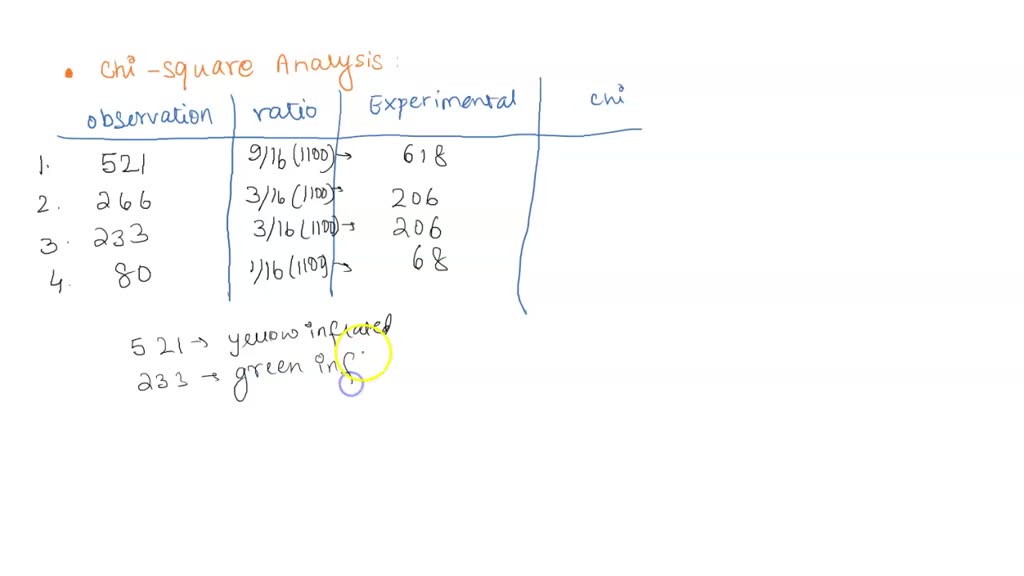 • Chi-square Analysis:
observation ratio Experimental chi
1. 521 9/16 (1100) → 618
2. 266 3/16 (1100) → 206
3. 233 3/16 (1100) → 206
4. 80 1/16 (1100) → 68
521 → yellow inflated
233 → green inf